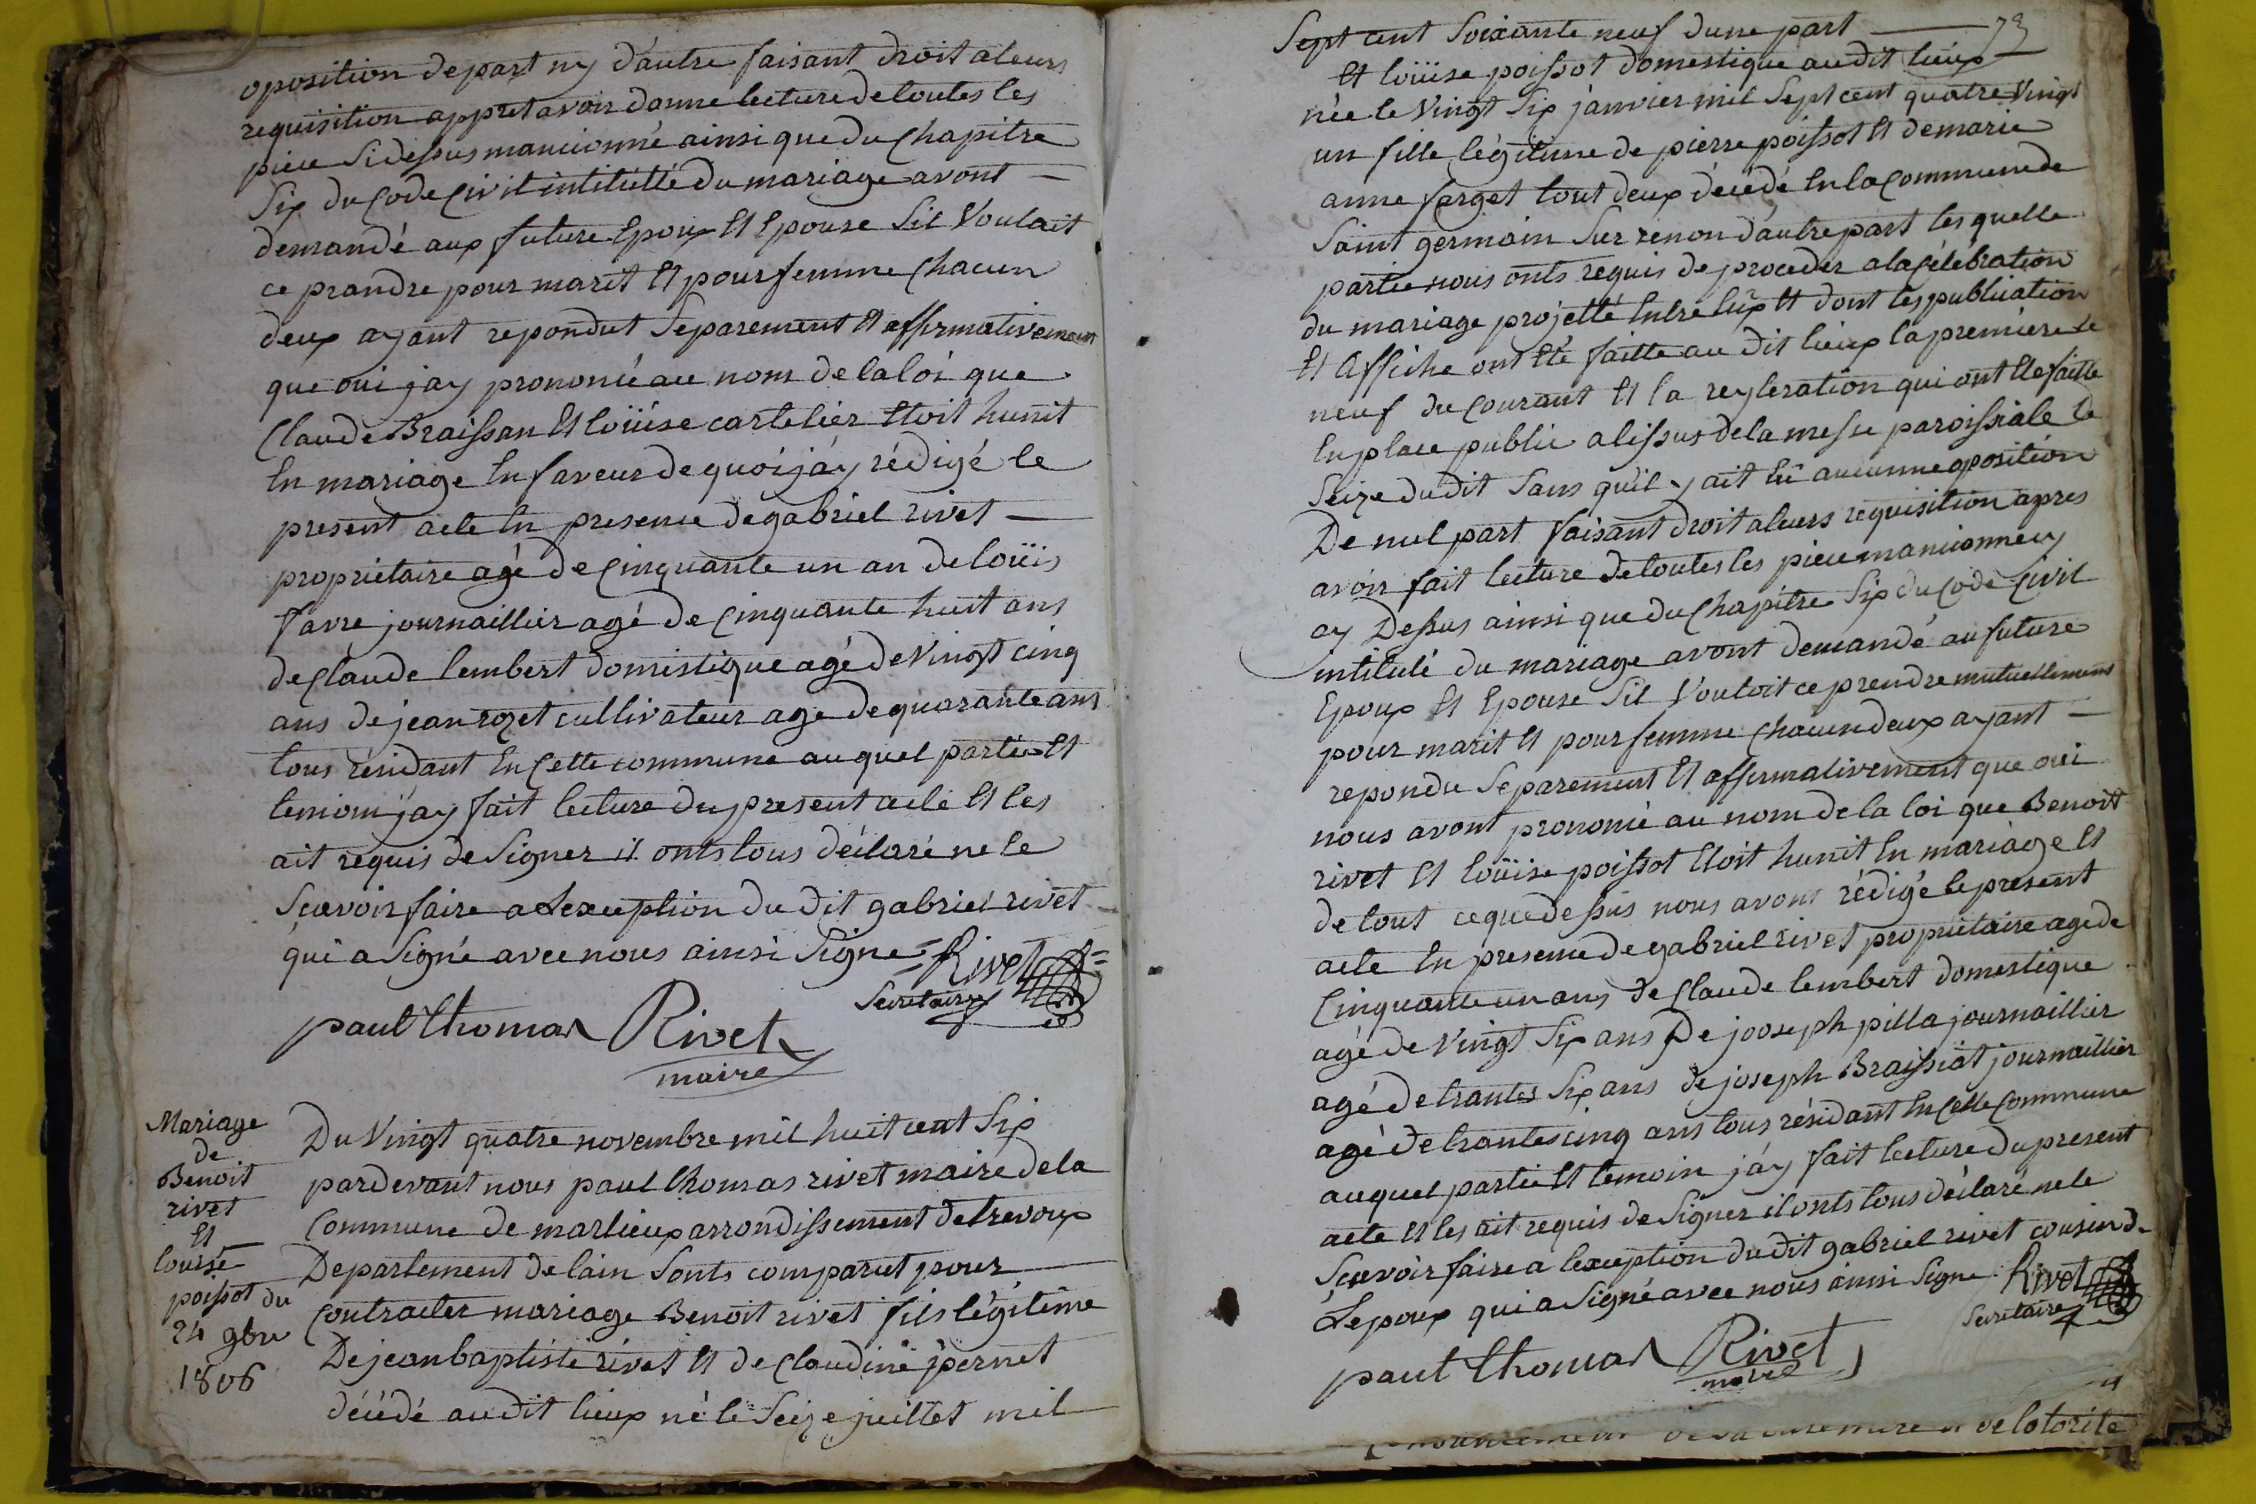 oposition depart ny d'autre faisant droit aleurs
requisition appret avoir donne lecture de toutes les
piece sidessus mancionné ainsi que du Chapitre
Six du Code Civil intitullé du mariage avont
demandé aux future Epoux Et Epouse Sil Voulait
ce prandre pour marit Et pour femme Chacun
deux ayant repondut Separement Et affirmativement
que oui jay prononcé au nom de la loi que
Claude Braissan Et loüise cartelier Etoit hunit
En mariage En faveur de quoi jáy rédigé le
present acte En presence de gabriel rivet
proprietaire agé de Cinquante un an de loüis
favre journaillier agé de Cinquante huit ans
de Claude lembert domistique agé de Vingt cinq
ans de jean rozet cultivateur age de quarante ans
tous résidant En Cette commune auquel partie Et
temoin jay fait lecture du present acte Et les
ait requis de Signer il onts tous déclaré ne le
Scavoir faire a Lexception du dit gabriel rivet
qui a Signé avec nous ainsi Signe = Rivet =
Secretaire
paul thomas Rivet
maire
Mariage
de
Benoit
rivet
Et
louise
poissot du
24 9bre
1806
Du Vingt quatre novembre mil huit cent Six
pardevant nous paul thomas rivet maire de la
Commune de marlieux arrondissement de trevoux
Departement de lain Sonts comparut pour
Contracter mariage Benoit rivet fils légitime
De jean baptiste rivet Et de Claudine pernet
décédé audit lieux né le Seize juillet mil
Sept cent Soixante neuf dune part 73
Et loüise poissot domestique audit lieux
née le Vingt Six janvier mil Sept cent quatre Vingt
un fille légitime de pierre poissot Et de marie
anne farget tout deux décédé En la Commune de
Saint germain Sur renon d'autre part les quelle
partie nous onts requis de proceder a la Célébration
du mariage projetté Entre Eux Et dont les publication
Et Affiche ont Eté faitte au dit lieux la premiere le
neuf du Courant Et la reyteration qui ont Ete faitte
En place public a lissus de la messe paroissiale le
Seize dudit Sans qu'il y ait Eü aucunne oposition
De nul part faisant droit aleurs requisition apres
avoir fait lecture de toutes les piece mancionne cy
cy Dessus ainsi que du Chapitre Six du Code Civil
intitulé du mariage avont demandé au future
Epoux Et Epouse Sil Vouloit ce prendre mutuellement
pour marit Et pour femme Chacun deux ayant
repondu Séparement Et affirmativement que oui
nous avont prononcé au nom de la loi que Benoit
rivet Et loüise poissot Etoit hunit En mariage Et
de tout ce que dessus nous avons rédigé le present
acte En presence de gabriel rivet propriétaire agé de
Cinquante un ans de Claude lembert domestique
agé de Vingt Six ans De jooseph pilla journaillier
agé de trantes Six ans de joseph Braissiat journaillier
agé de trantes cinq ans tous résidant En Cette Commune
auquel partie Et temoin jáy fait lecture du present
acte Et les ait requis de Signer il onts tous déclaré ne le
Scavoir faire a lexception dudit gabriel rivet cousin de
Lepoux qui a Signé avec nous ainsi Signe Rivet
Secretaire
paul thomas Rivet
maire
de latorité